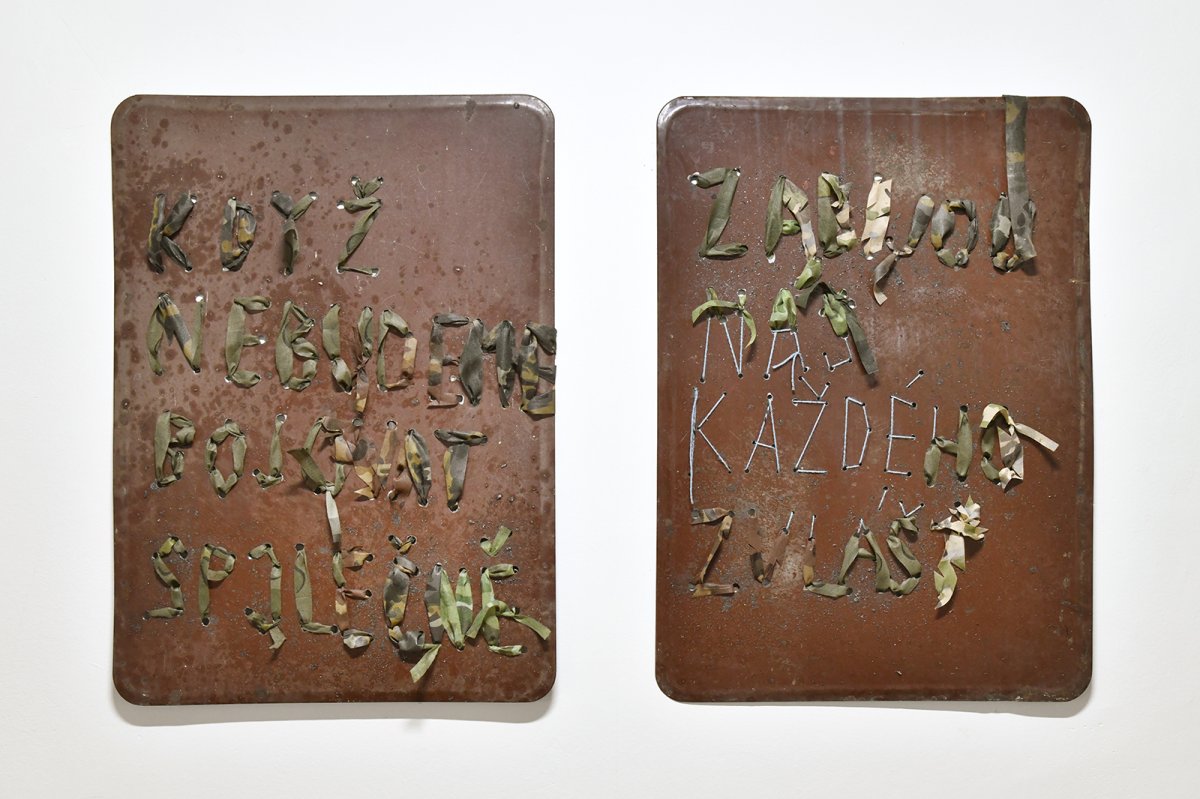 KDYŽ
NEBUDEME
BOJOVAT
SPOLEČNĚ
ZABIJOU
NÁS
KAŽDÉHO
ZVLÁŠŤ